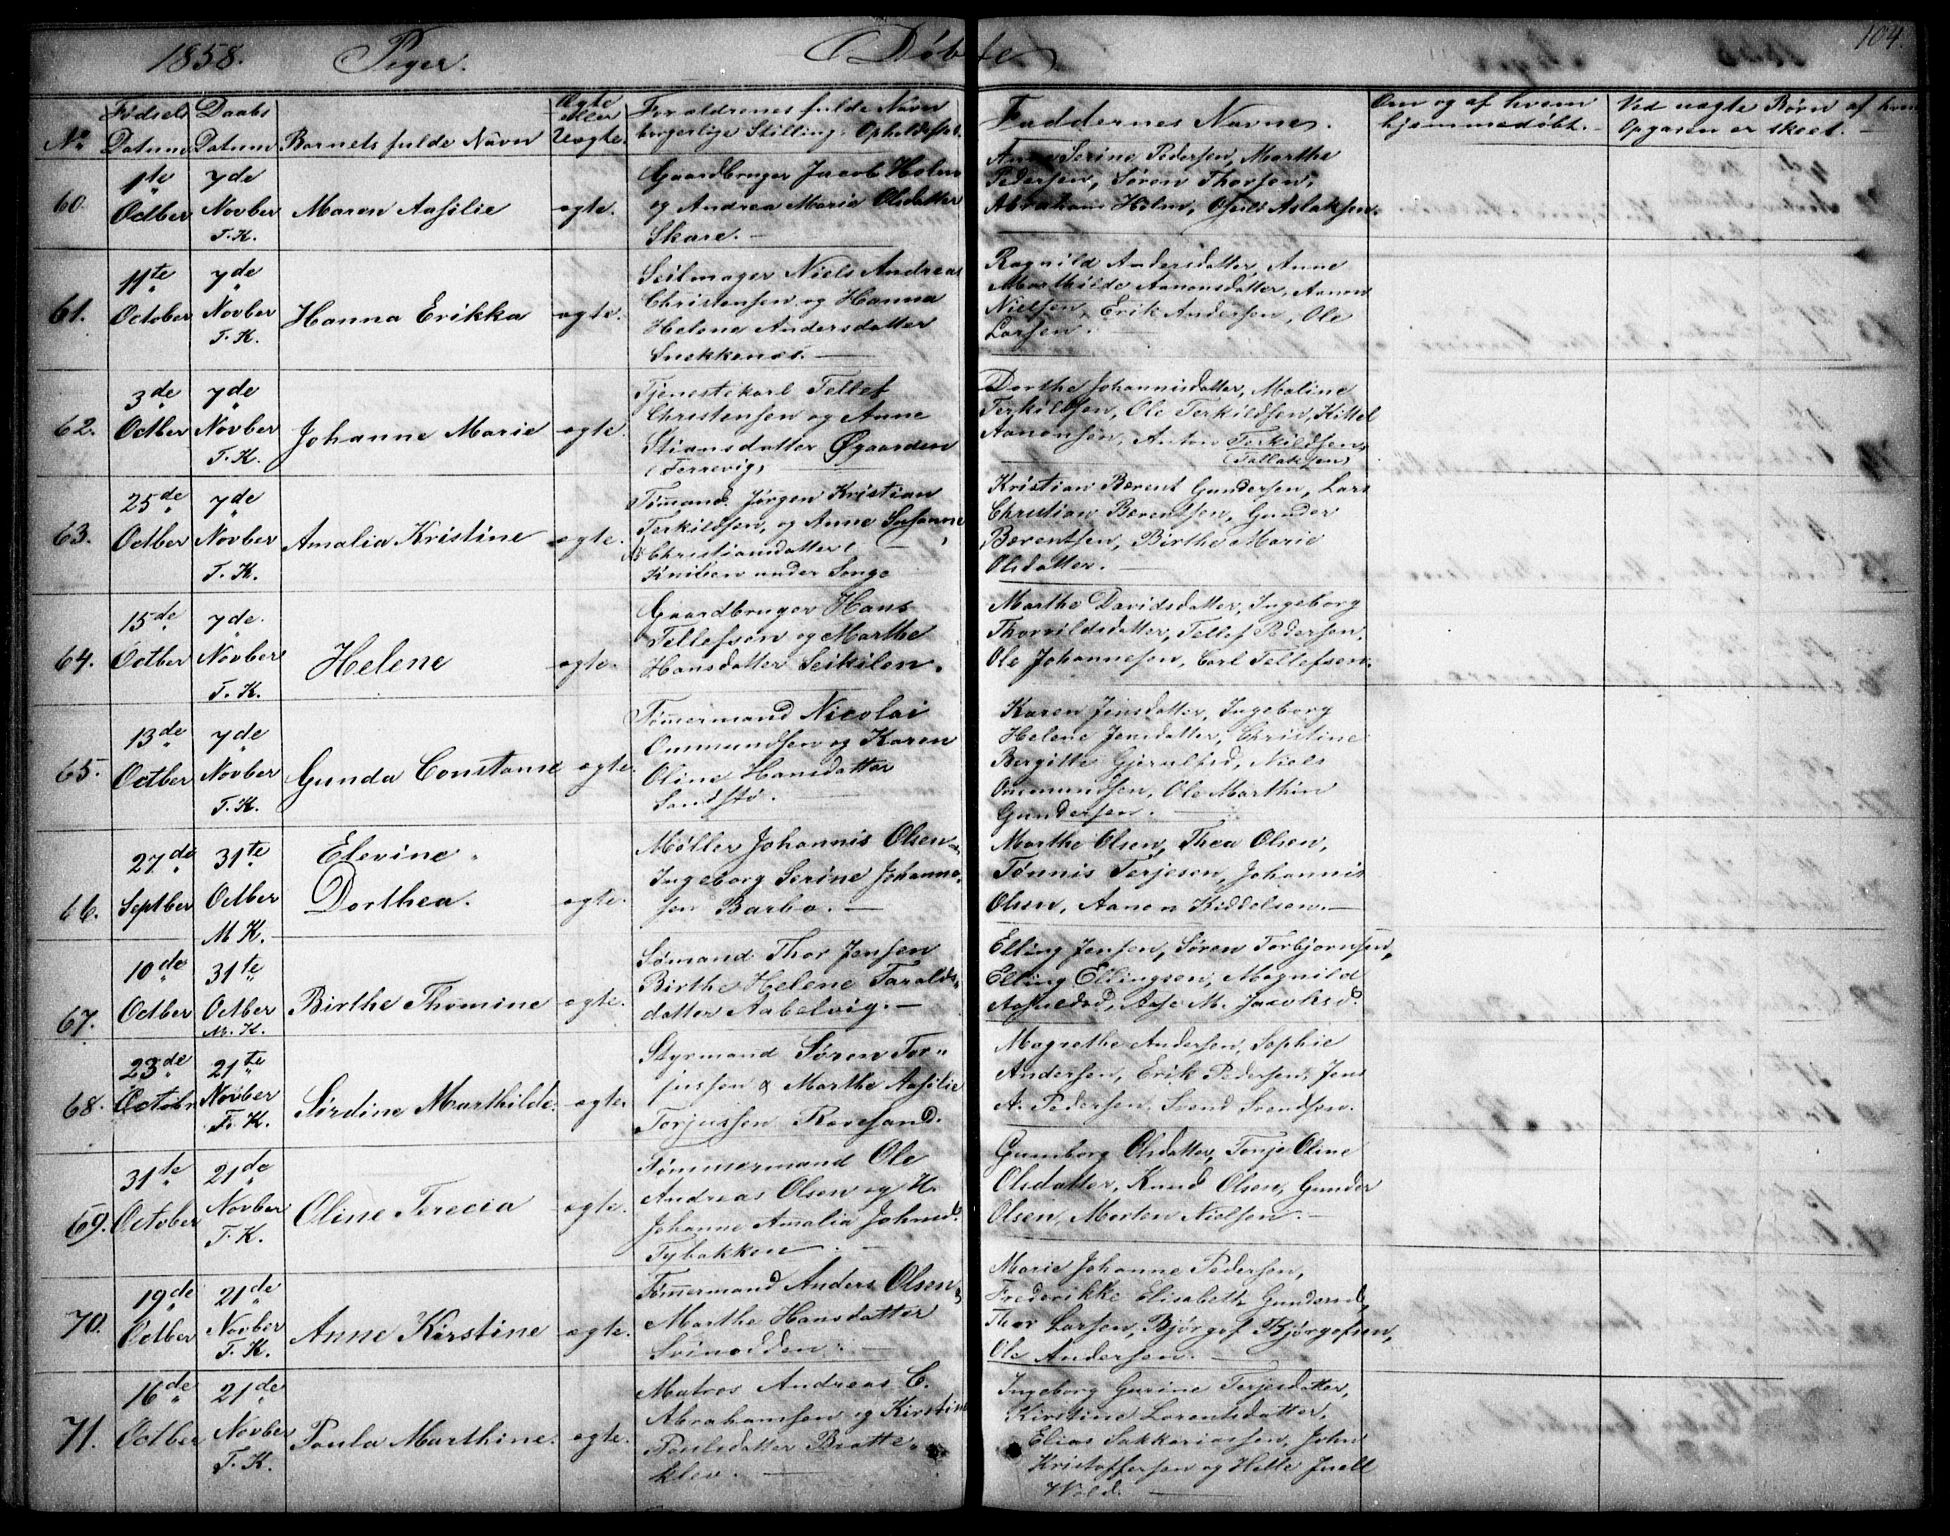 1858. Piger. Døbte 104.
No Fødsels Datum Daabs Datum Barnets fulde Navn Ægte eller Uægte. Forældrenes fulde Navn borgerlige Stilling, Opholdsst. Faddernes Navne. Om og af hvem hjemmedøbt. Ved uægte Børn af hvem Opgaven er skeet.
60. 1te Octber 7de Novber T. K. Maren Aasilie ægte. Gaardbruger Jacob Holm
og Andrea Marie Olsdatter
Skare. —
Anne Serine Pedersen, Marthe
Pedersen, Søren Thorsen,
Abrahams Holm, Aslaksen.
61. 11te October 7de Novber T. K. Hanna Erikka ægte. Seilmager Niels Andreas
Christensen og Hanna
Helene Andersdatter
Snekkenes. —
Ragnild Andersdatter, Anne
Marthilde Aanonsdatter, Aanon
Nielsen, Erik Andersen, Ole
Larsen.
62. 3de Octber 7de Novber T. K. Johanne Marie ægte. Tjenestekarl Tellef
Christensen og Anne
Stiansdatter Øgaarden
(Torrevig)
Dorthe Johannisdatter, Maline
Terkildsen, Ole Terkildsen, Kittel
Aanonsen, Anton Terkildsen,
(Tallaksen)
63. 25de Octber 7de Novber T. K. Amalia Kristine ægte. Tømand. Jörgen Kristian
Terkildsen, og Anne Susanne
Christiansdatter
Kniben under Songe
Kristian Berent Gundersen, Lars
Christian Berentsen, Gunder
Berentsen, Birthe Marie
Olsdatter. —
64. 15de Octber 7de Novber T. K. Helene ægte. Gaardbruger Hans
Tellefsen og Marthe
Hansdatter Seikilen.
Marthe Davidsdatter, Ingeborg
Thorvildsdatter, Tellef Pedersen,
Ole Johannesen, Carl Tellefsen.
65. 13de Octber 7de Novber T. K. Gunda Constanse ægte. Tømermand Nicolai
Ommundsen og Karen
Oline Hansdatter
Sandstø.
Karen Jensdatter, Ingeborg
Helene Jensdatter, Christine
Bergitte Niels
Ommundsen, Ole Marthin
Gundersen. —
66. 27de Septber 31te Octber M K. Elevine
Dorthea. ægte. Møller Johannis Olsen
Ingeborg Serine Johanne-
sen Barbo. —
Marthe Olsen, Thea Olsen,
Tønnis Terjesen, Johannis
Olsen, Aanon Kiddelsen. —
67. 10de Octber 31te Octber M. K. Birthe Thomine ægte. Sømand Thor Jensen
Birthe Helene Taralds-
datter Aabelvig. —
Elling Jensen, Søren Torbjornsen,
Elling Ellingsen, Magnild
Aase M. Jacobsd.
68. 23de Octobr 21te Novber F. K. Sørdine Marthilde. ægte. Styrmand Søren Tor-
jussen & Marthe Aasilie
Torjussen Revesand.
Magrethe Andersen, Sophie
Andersen, Erik Pedersen, Jens
A. Pedersen, Svend Svendsen.
69. 31te October 21de Novber T. K. Oline Terecia ægte. Tømmermand Ole
Andreas Olsen og H.
Johanne Amalia Johnsd.
Tybakken. —
Gunnborg Olsdatter, Tonje Oline
Olsdatter, Knud Olsen, Gunder
Olsen, Morten Nielsen. —
70. 19de Octber 21de Novber T. K. Anne Kirstine ægte. Tømermand Anders Olsen
Marthe Hansdatter
Svinodden. —
Marie Johanne Pedersen,
Frederikke Elisabeth Gundersd,
Thor Larsen, Bjørgof Bjørgofsen,
Ole Andersen. —
71. 16de Octber 21de Novber T. K. Paula Marthine. ægte. Matros Andreas C.
Abrahamsen og Kirstine
Poulsdatter Bratte-
klev. —
Ingeborg Gurine Terjesdatter,
Kirstine Lorentsdatter,
Elias Sakkariassen, John
Kristoffersen og Helle Juell
Wold. —